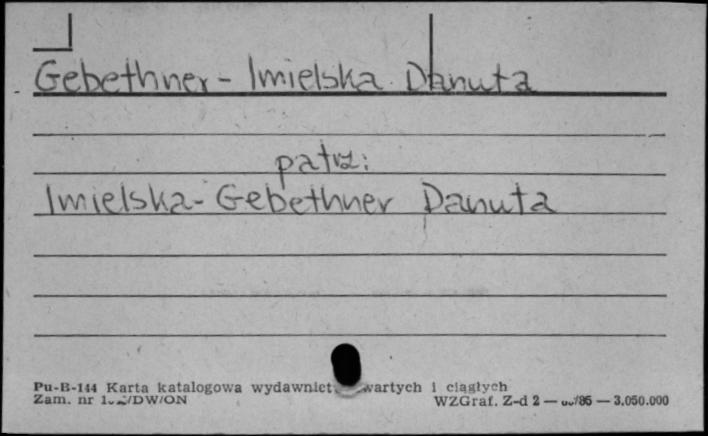 Gebethner - Imielska Danuta
patrz:
Imielska - Gebethner Danuta
Pu-B-144 Karta katalogowa i ciągłych
Zam. nr WZGraf. Z-d 2 — /85 — 3.050.000